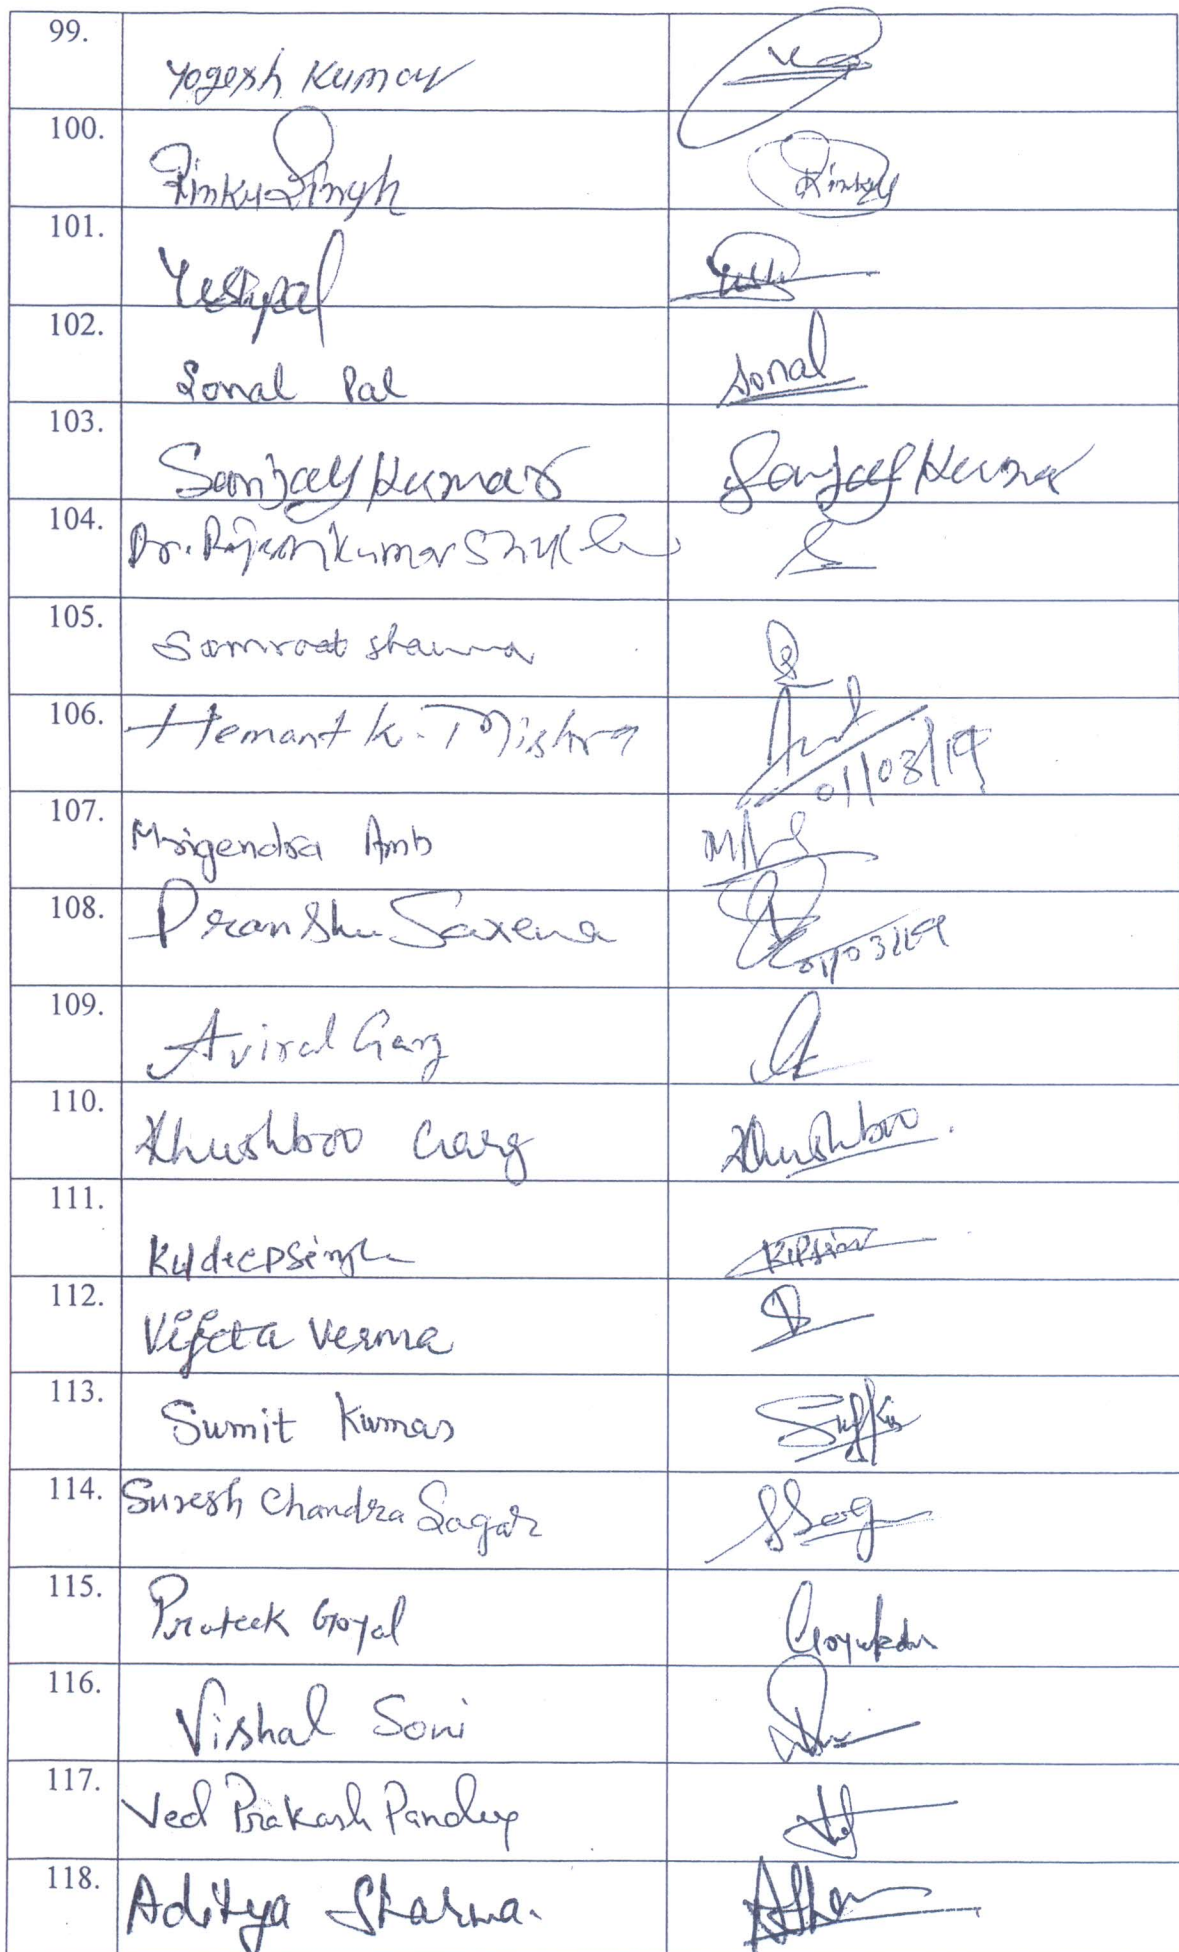 99. Yogesh Kumar
100. Rinku Singh Rinku
101. Yashpal
102. Sonal Pal Sonal
103. Sanjay Kumar Sanjay Kumar
104. Dr. Rajesh Kumar Shukla
105. Samraat Sharma
106. Hemant K. Mishra 01/03/19
107. Mrigendra Amb
108. Pranshu Saxena 01/03/19
109. Aviral Garg
110. Khushboo Garg Khushboo.
111. Kuldeep Singh
112. Vijeta Verma
113. Sumit Kumar
114. Suresh Chandra Sagar
115. Prateek Goyal
116. Vishal Soni
117. Ved Prakash Pandey
118. Aditya Sharma.